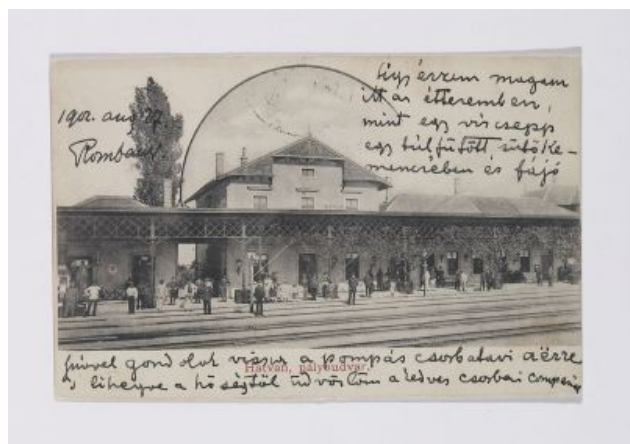 1902. aug 27
Rombauer
Úgy érzem magam
itt az étteremben,
mint egy vízcsepp
egy túlfűtött sütőke-
mencében és fájó
szívvel gondolok vissza a pompás csorbatavi aërre
s lihegve a hőségtől üdvözlöm a kedves csorbai
Hatvan, pályaudvar.